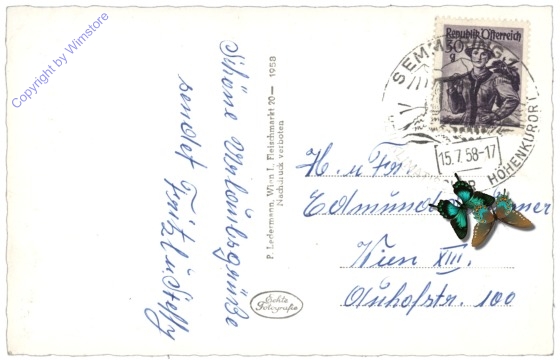 Copyright by Wimstore
Schöne Urlaubsgrüße
sendet Fritzl u. Steffy
P. Ledermann, Wien I., Fleischmarkt 20 — 1958
Nachdruck verboten
Echte
Fotografie
Republik Österreich
30
g
SEMMERING
15.7.58-17
HÖHENKURORT
H. u. Fr.
Edmund
Wien XIII.
Auhofstr. 100